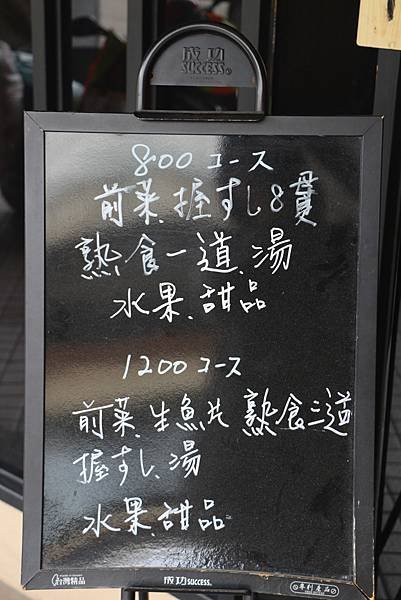 成功
SUCCESS®
800 コース
前菜、握すし8貫
熟食一道、湯
水果、甜品
1200コース
前菜、生魚片 熟食三道
握すし、湯
水果、甜品
台灣精品
成功 SUCCESS®
專利產品